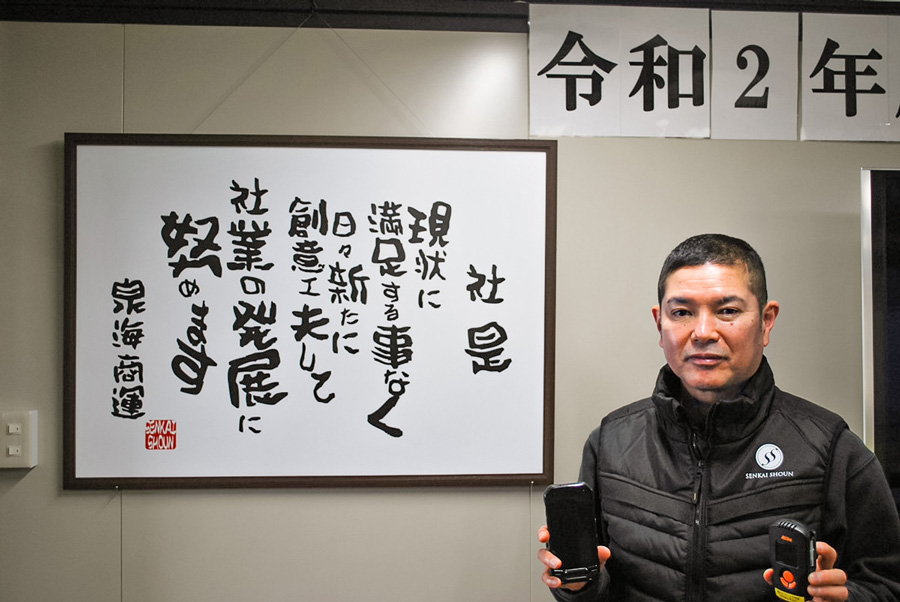 令和2年
社是
現状に
満足する事なく
日々新たに
創意工夫して
社業の発展に
努めます
泉海商運
SENKAI
SHOUN
SENKAI SHOUN